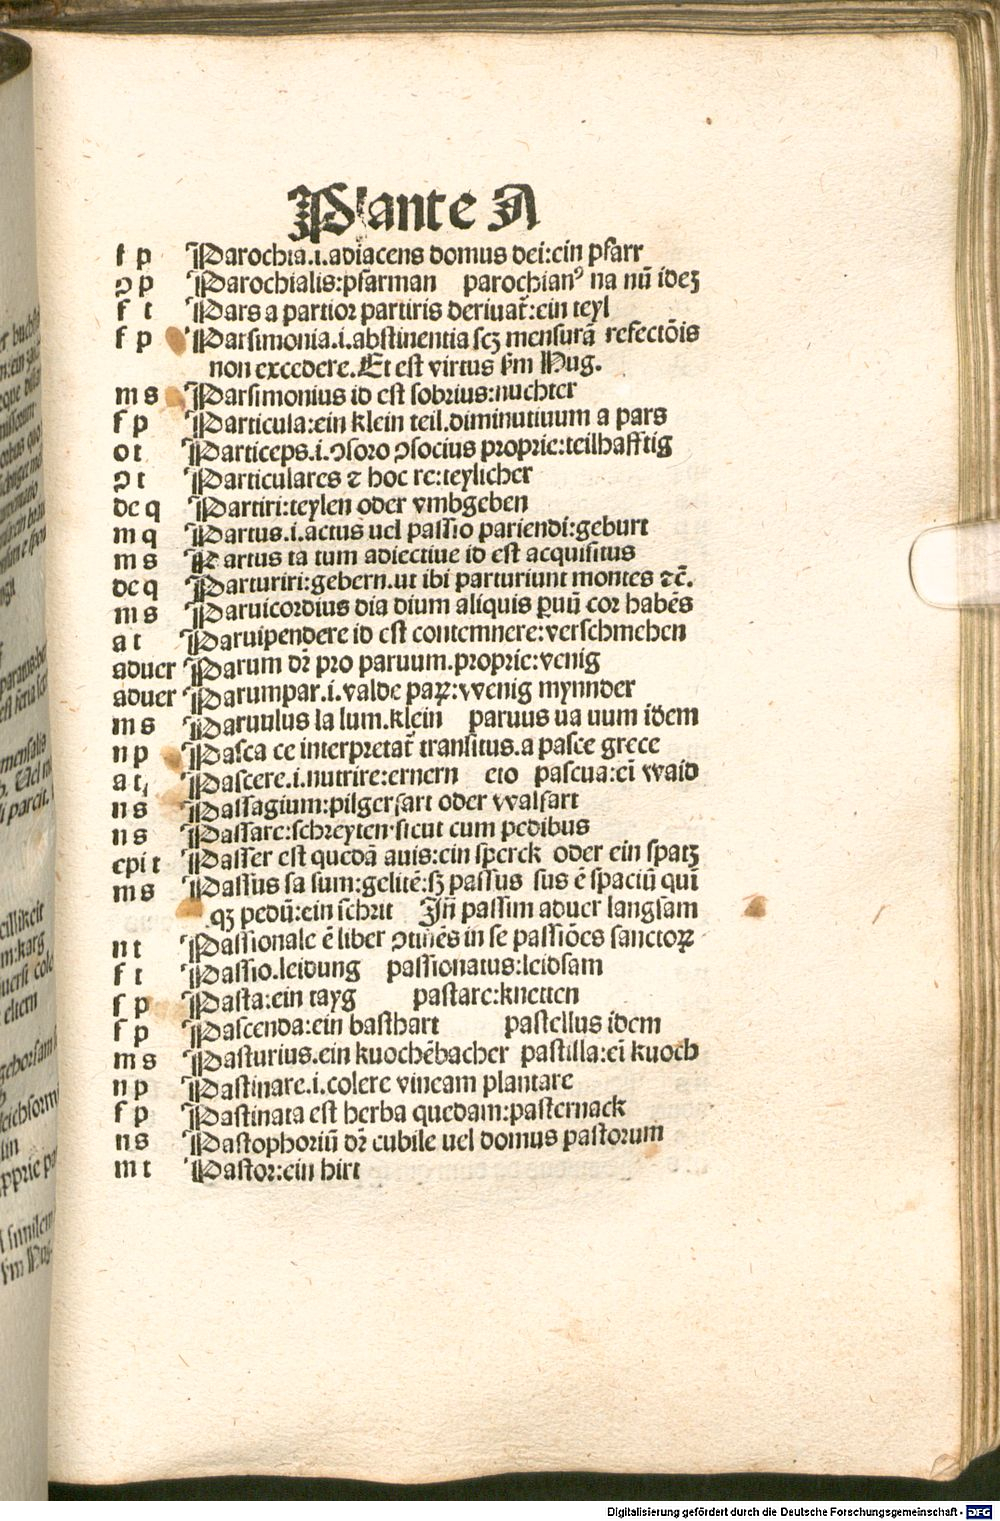 P ante A
f p Parochia.i.adiacens domus dei:ein pfarr
ꝯ p Parochialis:pfarman parochianꝰ na nū ideꝫ
f t Pars a partior partiris deriuat̄:ein teyl
f p Parsimonia.i.abstinentia scꝫ mensurā refectōis
non excedere.Et est virtus ẜm Hug.
m s Parsimonius id est sobrius:nuchter
f p Particula:ein klein teil.diminutiuum a pars
o t Particeps.i.ꝯsors ꝯsocius proprie:teilhafftig
ꝯ t Particulares ⁊ hoc re:teylicher
de q Partiri:teylen oder vmbgeben
m q Partus.i.actus uel passio pariendi:geburt
m s Partus ta tum adiectiue id est acquisitus
de q Parturiri:gebern.ut ibi parturiunt montes ⁊c̄.
m s Paruicordius dia dium aliquis ꝑuū cor habēs
a t Paruipendere id est contemnere:verschmehen
aduer Parum dr̄ pro paruum.proprie:venig
aduer Parumpar.i.valde paꝝ:wenig mynnder
m s Paruulus la lum.klein paruus ua uum idem
n p Pasca ce interpretat̄ transitus.a pasce grece
a t, Pascere.i.nutrire:ernern eto pascua:ei̅ waid
n s Passagium:pilgerfart oder walfart
n s Passare:schreyten·sicut cum pedibus
epi t Passer est quedā auis:ein sperck oder ein spatꝫ
m s Passus sa sum:gelitē:sꝫ passus sus ē spaciū qui̅
qꝫ pedū:ein schrit Jn̄ passim aduer langsam
n t Passionale ē liber ꝯtinēs in se passiōes sanctoꝝ
f t Passio.leidung passionatus:leidsam
f p Pasta:ein tayg pastare:knetten
f p Pascenda:ein basthart pastellus idem
m s Pasturius.ein kuochēbacher pastilla:ei̅ kuoch
n p Pastinare.i.colere vineam plantare
f p Pastinata est herba quedam:pasternack
n s Pastophoriū dr̄ cubile uel domus pastorum
m t Pastor:ein hirt
Digitalisierung gefördert durch die Deutsche Forschungsgemeinschaft - DFG